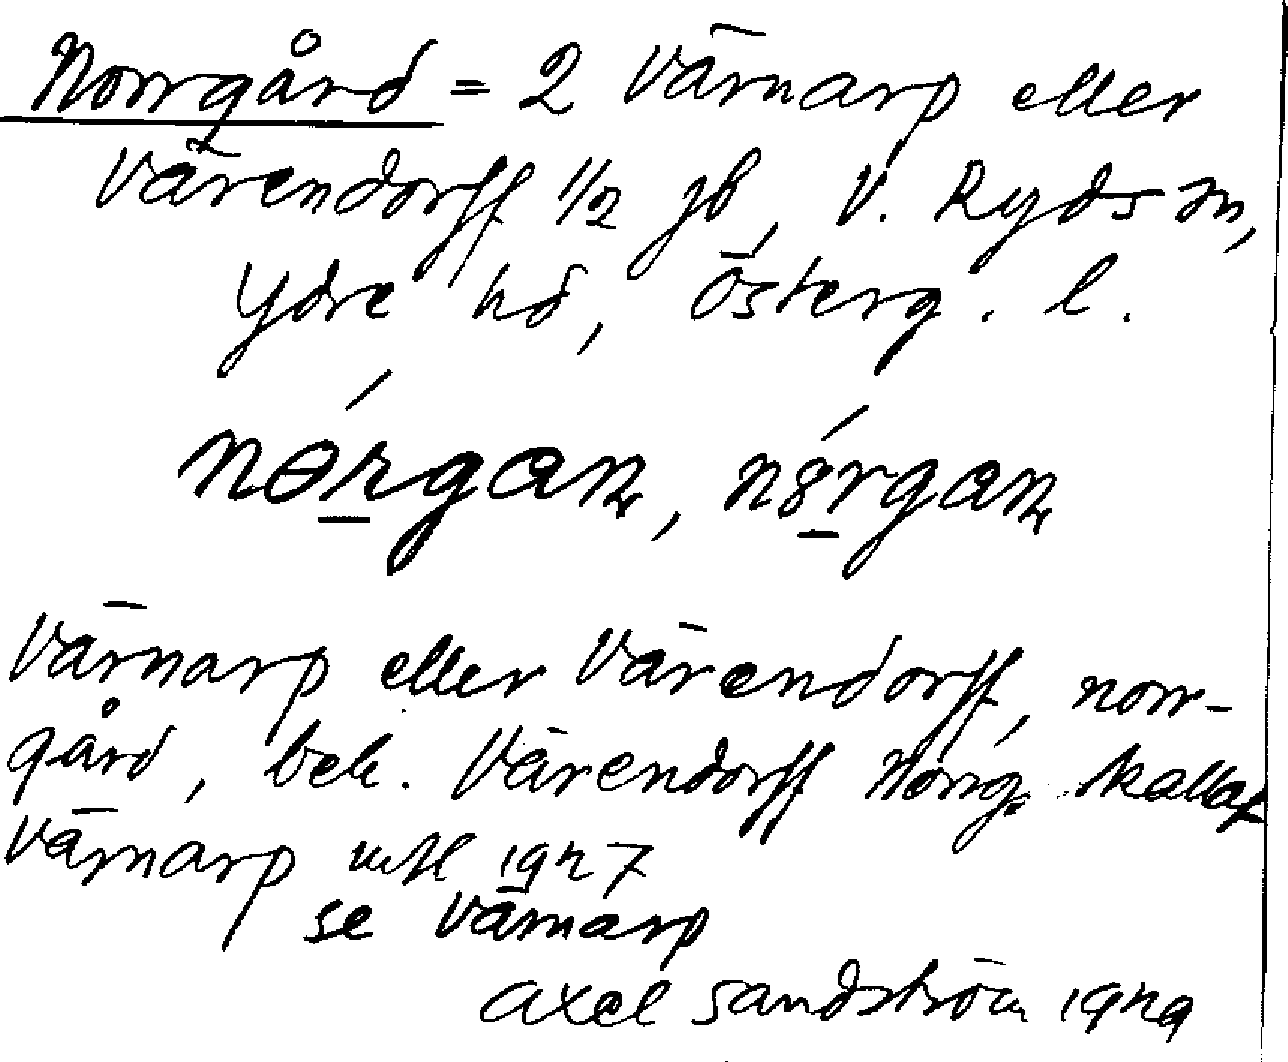 Norrgård = 2 Värnarp eller
Värendorff 1/2 jb, V. Ryds sn,
Ydre hd, Österg. l.
nørgan, nørgan
Värnarp eller Värendorff, norr-
gård, bek. Värendorff Norrg. kallat
Värnarp utl 1947
se Värnarp
Axel Sandström 1949